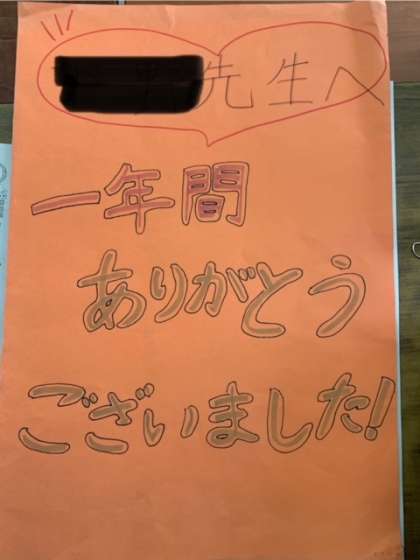 先生へ
一年間
ありがとう
ございました!